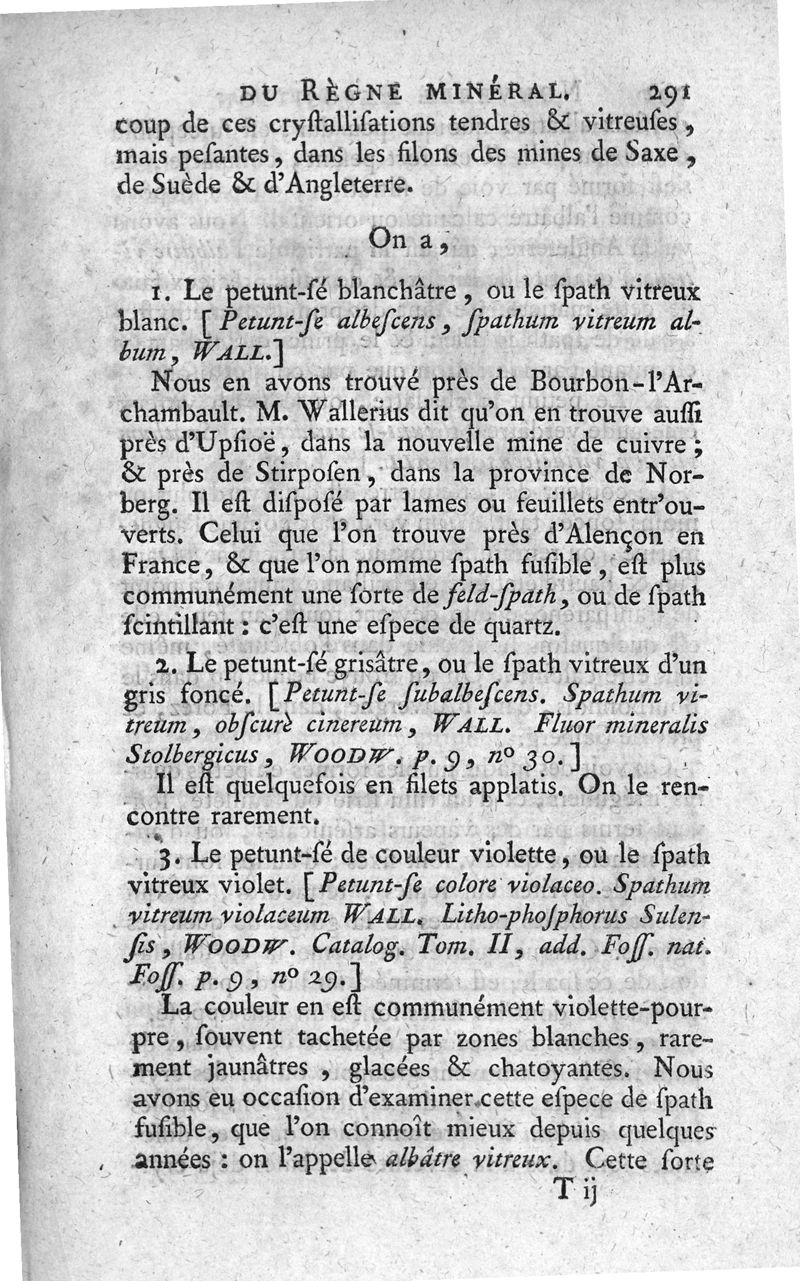 DU RÈGNE MINÉRAL. 291
coup de ces cryſtalliſations tendres & vitreuſes,
mais peſantes, dans les filons des mines de Saxe,
de Suède & d'Angleterre.
On a,
1. Le petunt-ſé blanchâtre, ou le ſpath vitreux
blanc. [Petunt-ſe albeſcens, ſpathum vitreum al-
bum, WALL.]
Nous en avons trouvé près de Bourbon-l'Ar-
chambault. M. Wallerius dit qu'on en trouve auſſi
près d'Upſioë, dans la nouvelle mine de cuivre;
& près de Stirpoſen, dans la province de Nor-
berg. Il eſt diſpoſé par lames ou feuillets entr'ou-
verts. Celui que l'on trouve près d'Alençon en
France, & que l'on nomme ſpath fuſible, eſt plus
communément une ſorte de feld-ſpath, ou de ſpath
ſcintillant : c'eſt une eſpece de quartz.
2. Le petunt-ſé griſâtre, ou le ſpath vitreux d'un
gris foncé. [Petunt-ſe ſubalbeſcens. Spathum vi-
treum, obſcurè cinereum, WALL. Fluor mineralis
Stolbergicus, WOODW. p. 9, nº 30.]
Il eſt quelquefois en filets applatis. On le ren-
contre rarement.
3. Le petunt-ſé de couleur violette, ou le ſpath
vitreux violet. [Petunt-ſe colore violaceo. Spathum
vitreum violaceum WALL. Litho-phoſphorus Sulen-
ſis, WOODW. Catalog. Tom. II, add. Foſſ. nat.
Foſſ. p. 9, nº 29.]
La couleur en eſt communément violette-pour-
pre, ſouvent tachetée par zones blanches, rare-
ment jaunâtres, glacées & chatoyantes. Nous
avons eu occaſion d'examiner cette eſpece de ſpath
fuſible, que l'on connoît mieux depuis quelques
années : on l'appelle albâtre vitreux. Cette ſorte
T ij